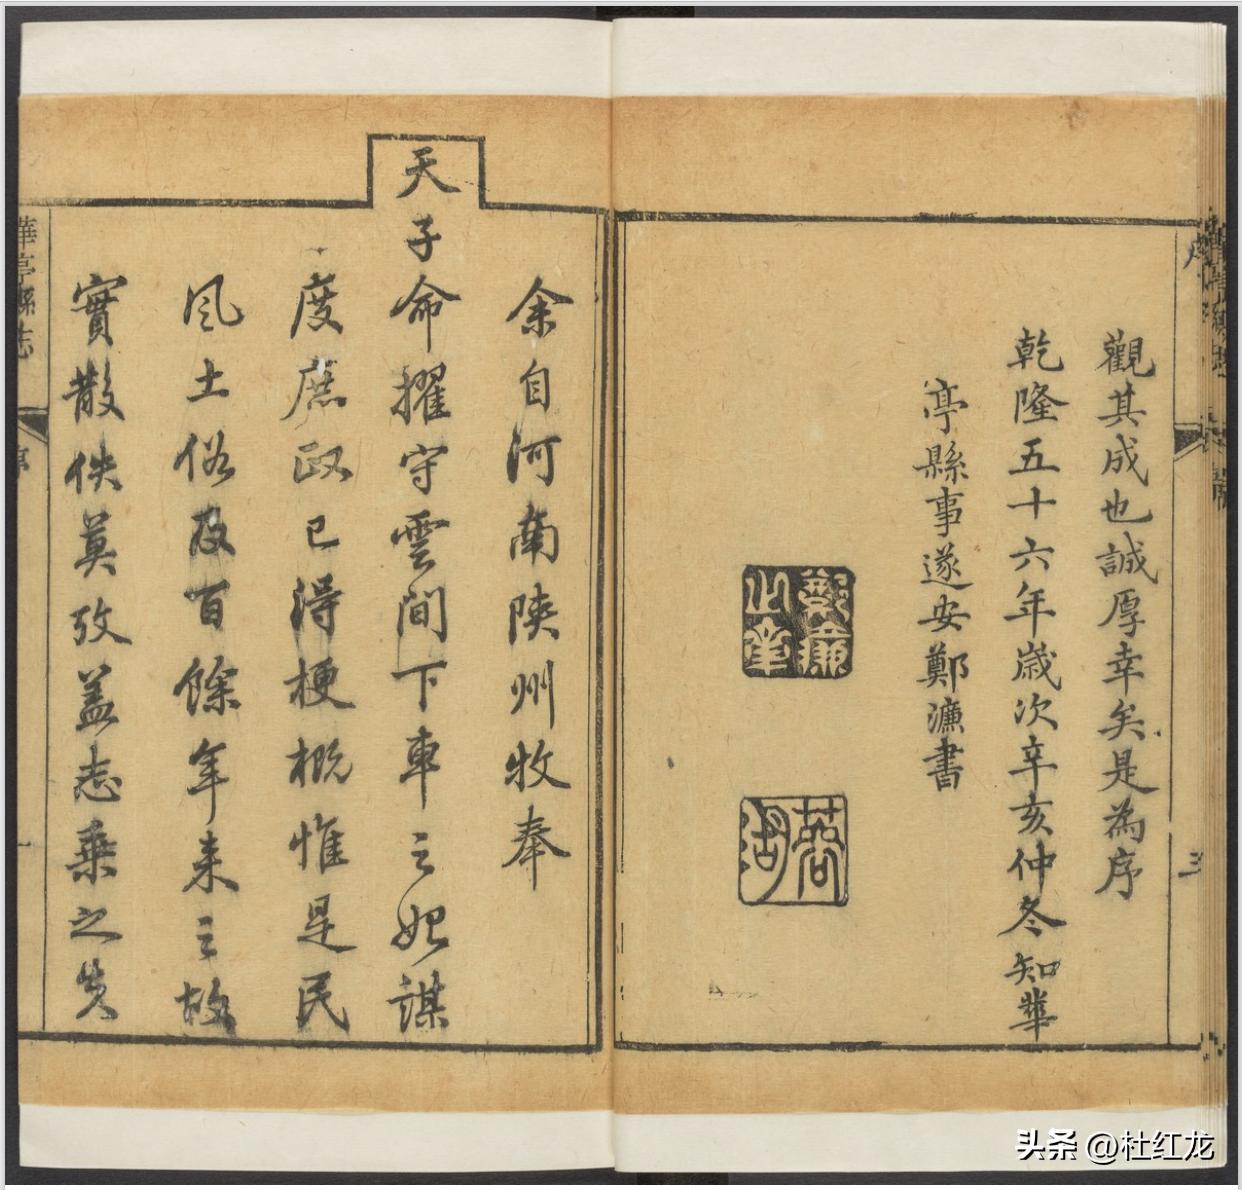 觀其成也誠厚幸矣是為序
乾隆五十六年歲次辛亥仲冬知華
亭縣事遂安鄭濂書
鄭濂之章
蓉湖
三
余自河南陝州牧奉
天子命擢守雲間下車之始謀
度庶政已得梗概惟是民
風土俗及百餘年来之故
實散佚莫攷盖志乗之失
華亭縣志
序
一
头条 @杜红龙